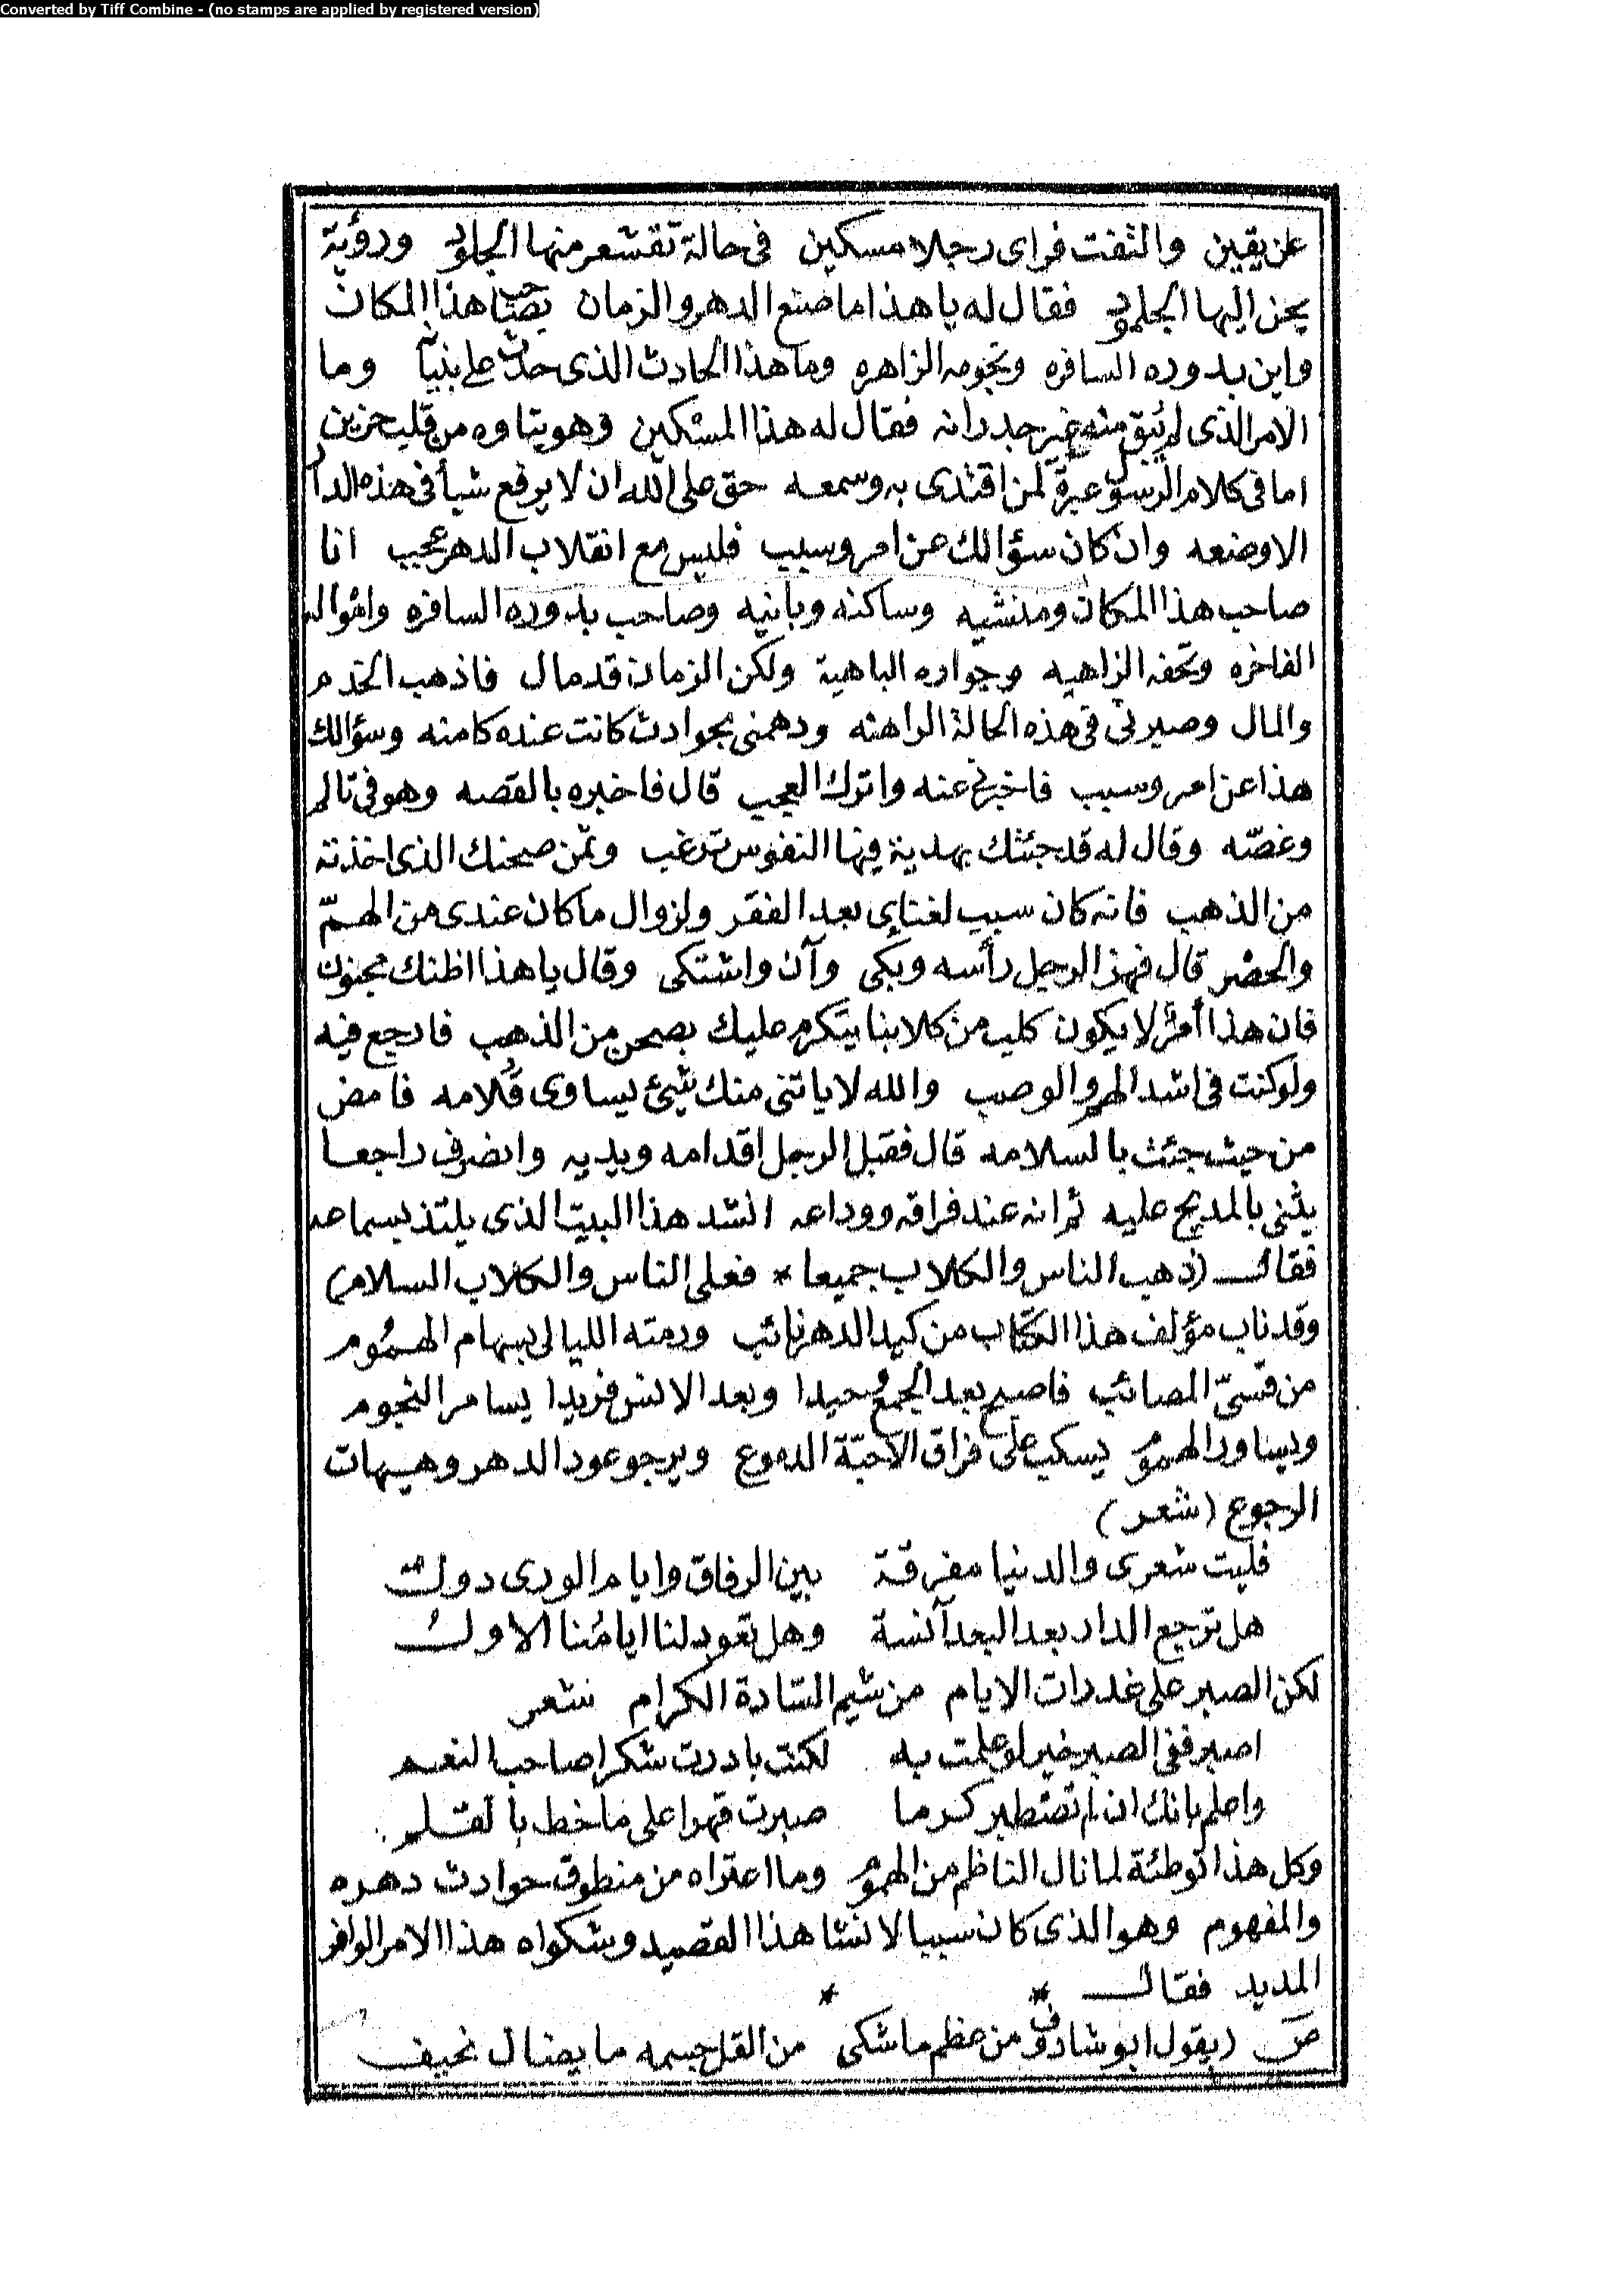 Converted by Tiff Combine - (no stamps are applied by registered version)
عن يقين والتفت فراى رجلا مسكين فى حالة تقشعر منها الجلود ورؤية
يحن اليها الجلمود فقال له يا هذا ما صنع الدهر والزمان بصاحب هذا المكان
واين بدوره السافره ونجومه الزاهره وما هذا الحادث الذى حدث على بنيآ وما
الامر الذى لم يُبق منه غير جدرانه فقال له هذا المسكين وهو يتاوه من قلب حزين
اما فى كلام الرسول عبرة لمن اقتدى به وسمعه حق على الله ان لا يرفع شيأ فى هذه الدار
الا وضعه وان كان سؤالك عن امر وسبب فليس مع انقلاب الدهر عجب انا
صاحب هذا المكان ومنشيه وساكنه وبانيه وصاحب بدوره السافره وامواله
الفاخره وتحفه الزاهيه وجواره الباهية ولكن الزمان قد مال فاذهب الخدم
والمال وصيرنى فى هذه الحالة الراهنه ودهمنى بحوادث كانت عنده كامنه وسؤالك
هذا عن امر وسبب فاخبرنى عنه واترك العجب قال فاخبره بالقصه وهو فى تالم
وغصّه وقال له قد جئتك بهدية فيها النفوس ترغب وثمن صحنك الذى اخذته
من الذهب فانه كان سبب لغناى بعد الفقر ولزوال ما كان عندى من الهمّ
والحصْر قال فهز الرجل رأسه وبكى وآن واشتكى وقال يا هذا اظنك مجنون
فان هذا أمرٌ لا يكون كلب من كلابنا يتكرم عليك بصحن من الذهب فارجع فيه
ولو كنت فى اشد الهم والوصب والله لا ياتنى منك شيئ يساوى قُلامه فامض
من حيث جئت بالسلامه قال فقبل الرجل اقدامه ويديه وانصرف راجعا
يثنى بالمديح عليه ثم انه عند فراقه ووداعه انشد هذا البيت الذى يلتذ بسماعه
فقال (ذهب الناس والكلاب جميعا * فعلى الناس والكلاب السلام)
وقد ناب مؤلف هذا الكتاب من كيد الدهر نائب ورمته الليالى بسهام الهمُوم
من قسىّ المصائب فاصبح بعد الجمع وحيدا وبعد الانس فريدا يسامر النجوم
ويساور الهموم يسكب على فراق الآحبّة الدموع ويرجو عود الدهر وهيهات
الرجوع (شعر)
فليت شعرى والدنيا مفرقة بين الرفاق وايام الورى دول
هل ترجع الدار بعد البعد آنسة وهل تعود لنا ايامُنا الاولُ
لكن الصبر على غدرات الايام من شيم السّادة الكرام شعر
اصبر ففى الصبر خير لو علمت به لكنت بادرت شكرا صاحب النعم
واعلم بانك ان لم تصطبر كرما صبرت قهرا على ما خط بالقلم
وكل هذا توطئة لما نال الناظم من الهموم وما اعتراه من منطوق حوادث دهره
والمفهوم وهو الذى كان سببا لانشا هذا القصيد وشكواه هذا الامر الوافر
المديد فقال * *
ص (يقول ابو شادوف من عظم ما شكى من القل جسمه ما يضال نحيف